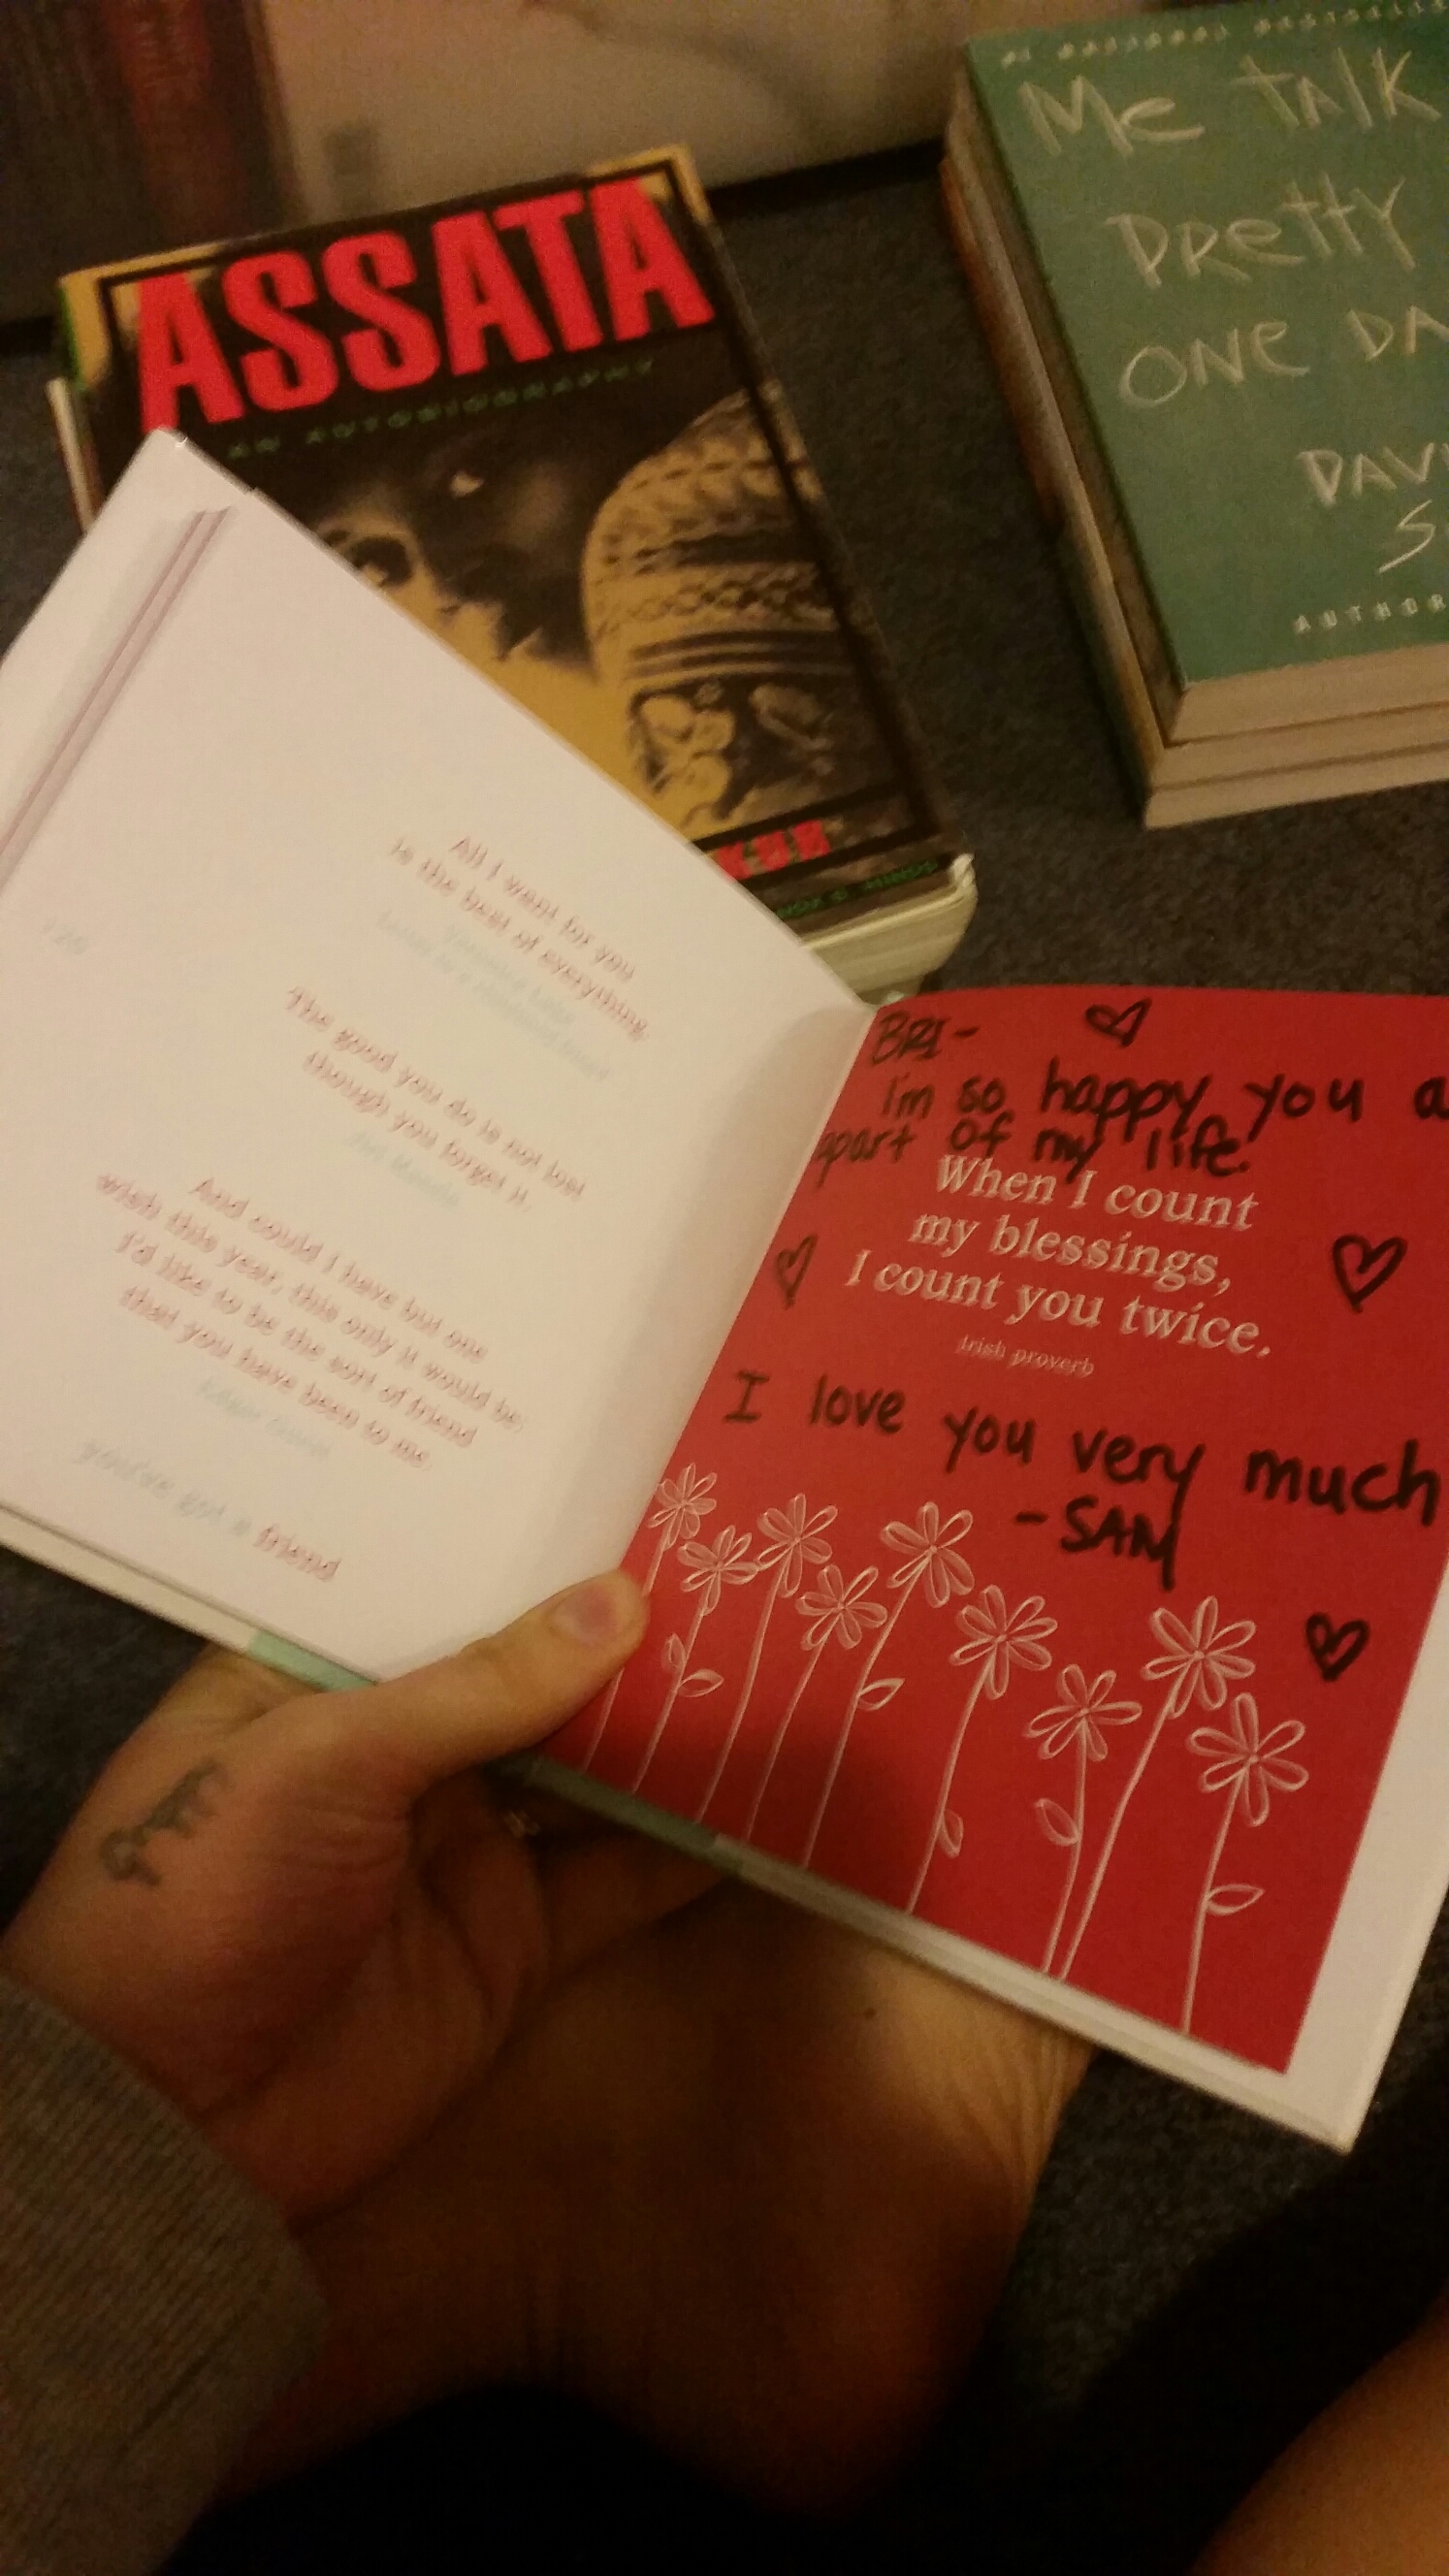 ASSATA
AN AUTOBIOGRAPHY
Me TAlK
PRetty
ONe DA
DAV
S
AUTHOR
All I want for you
is the best of everything.
The good you do is not lost
though you forget it.
And could I have but one
wish this year, this only it would be:
I'd like to be the sort of friend
that you have been to me.
you've got a friend
BRI-
I'm so happy you a
apart of my life.
When I count
my blessings,
I count you twice.
Irish proverb
I love you very much
-SAM